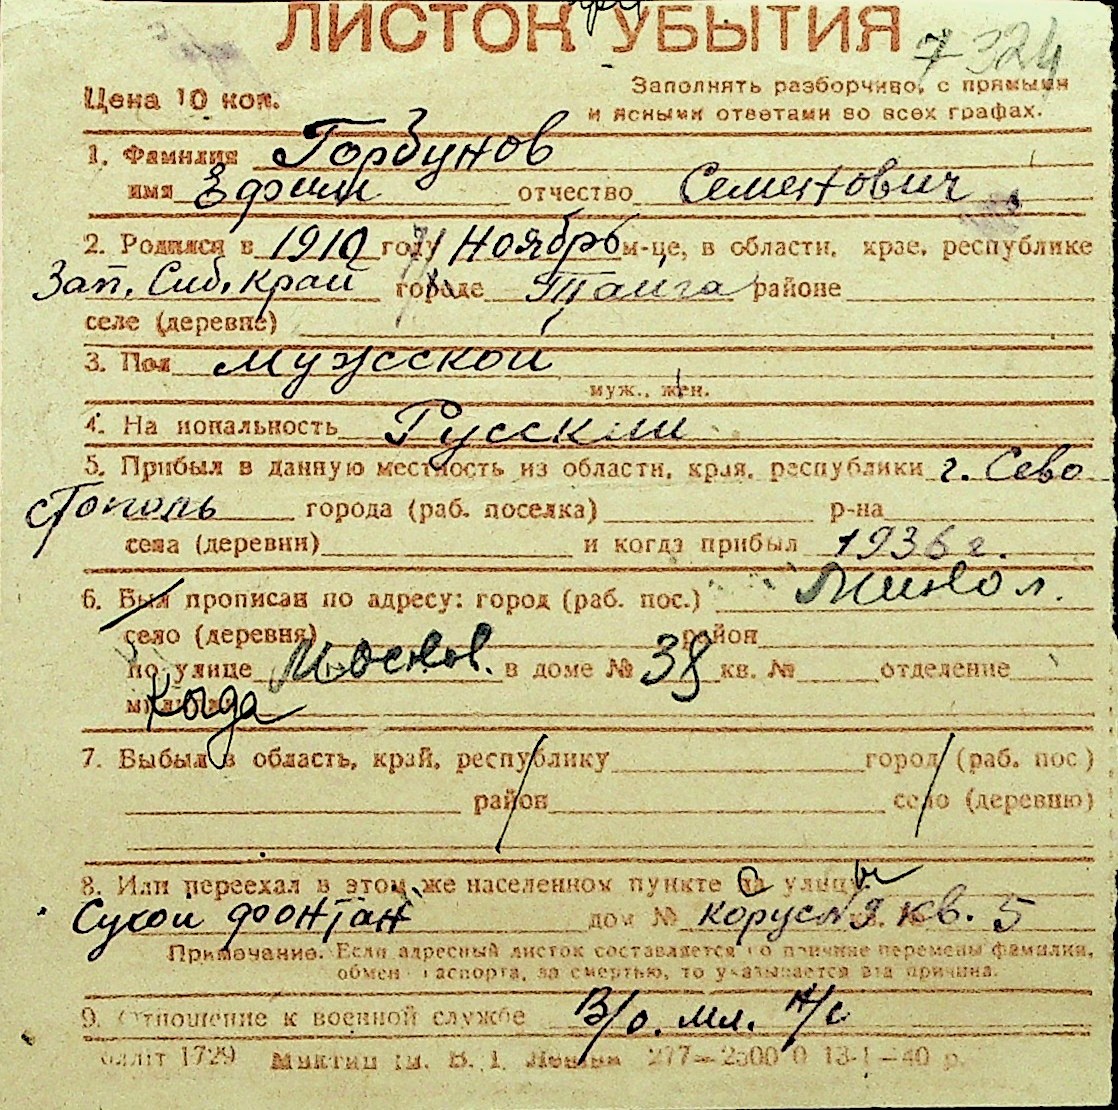 ЛИСТОК УБЫТИЯ
7324
Цена 10 коп.
Заполнять разборчиво, с прямыми
и ясными ответами во всех графах.
1. Фамилия Горбунов
имя Ефим отчество Семенович
2. Родился в 1910 году 7/ Ноябрь м-це, в области, крае, республике
Зап. Сиб. край городе Тайга районе
селе (деревне)
3. Пол мужсской
муж., жен.
4. На иональность Русский
5. Прибыл в данную местность из области, края, республики г. Сево
стополь города (раб. поселка) р-на
села (деревни) и когда прибыл 1936 г.
6. Был прописан по адресу: город (раб. пос.)
село (деревня) район
по улице Москов. в доме № 38 кв. № отделение
Когда
7. Выбыл в область, край, республику город (раб. пос)
район село (деревню)
8. Или переехал в этом же населенном пункте с улицы
Сухой фонтан дом № корус №9. кв. 5
Примечание. Если адресный листок составляется по причине перемены фамилии,
обмен паспорта, за смертью, то указывается эта причина.
9. Отношение к военной службе В/о. мл. н/с
1729 277—2500 0 13-1—40 р.